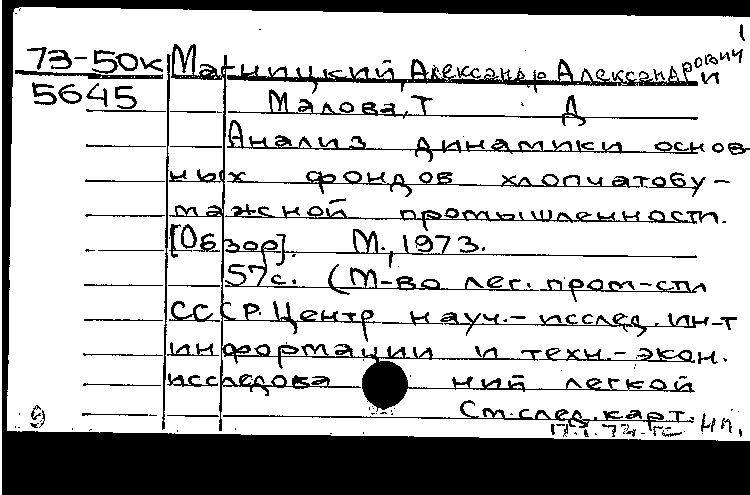 1
73-50к Матницкий, Александр Александрович и
5645 Малова, Т Д
Анализ динамики основ
ных фондов хлопчатобу-
мажной промышленности.
[Обзор]. М., 1973.
57с. (М-во лег. пром-сти
СССР. Центр науч.-исслед. ин-т
информации и техн.-экон.
исследова ний легкой
См. след. карт.